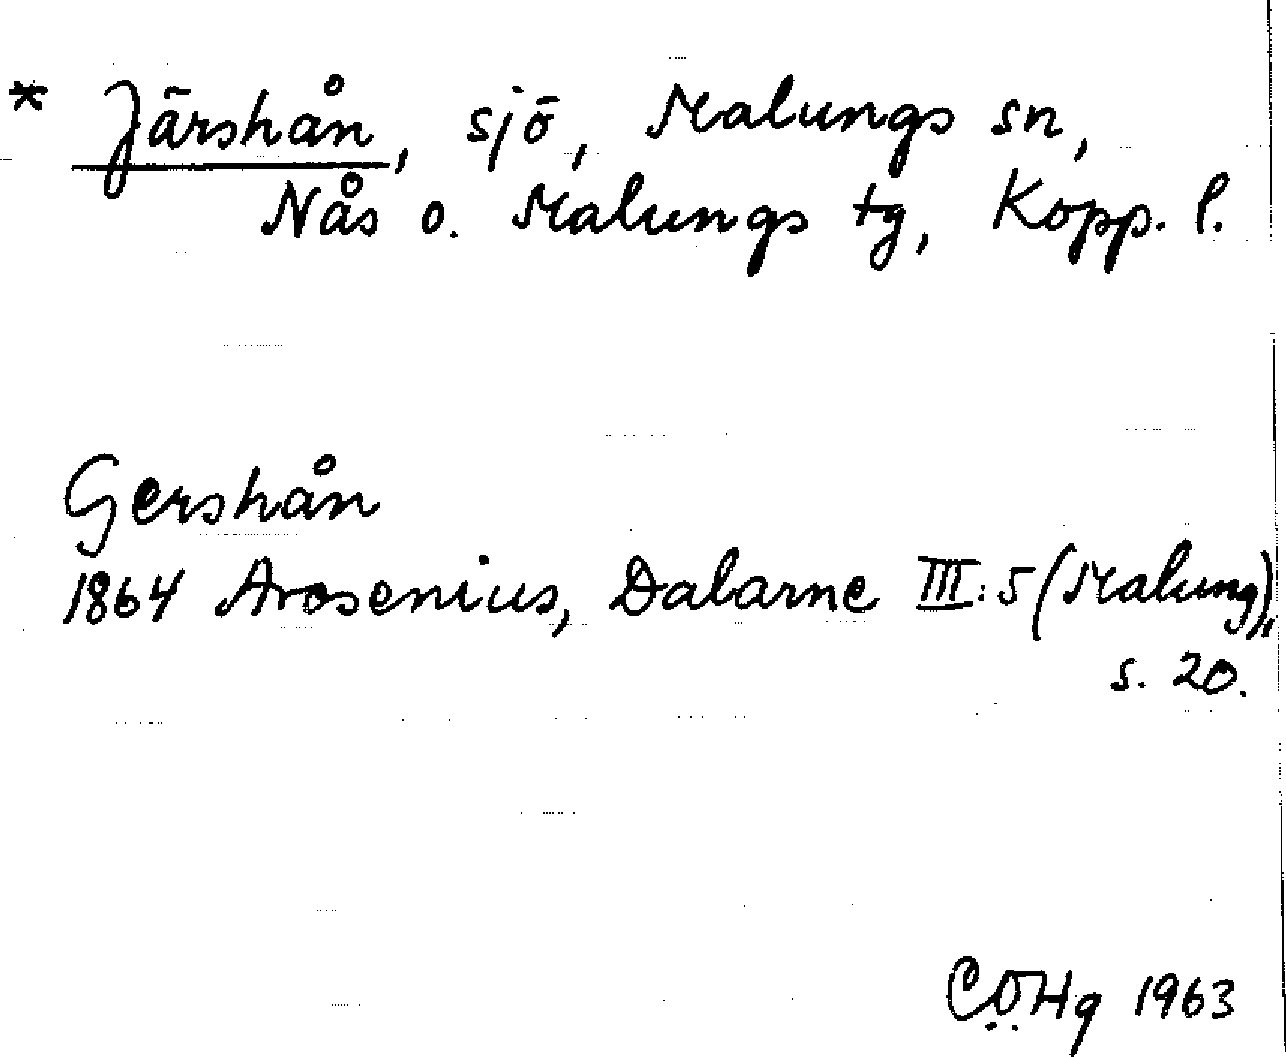 * Järshån, sjö, Malungs sn,
Nås o. Malungs tg, Kopp. l.
Gershån
1864 Arosenius, Dalarne III:5 (Malung),
s. 20.
C.Ö.Hg 1963